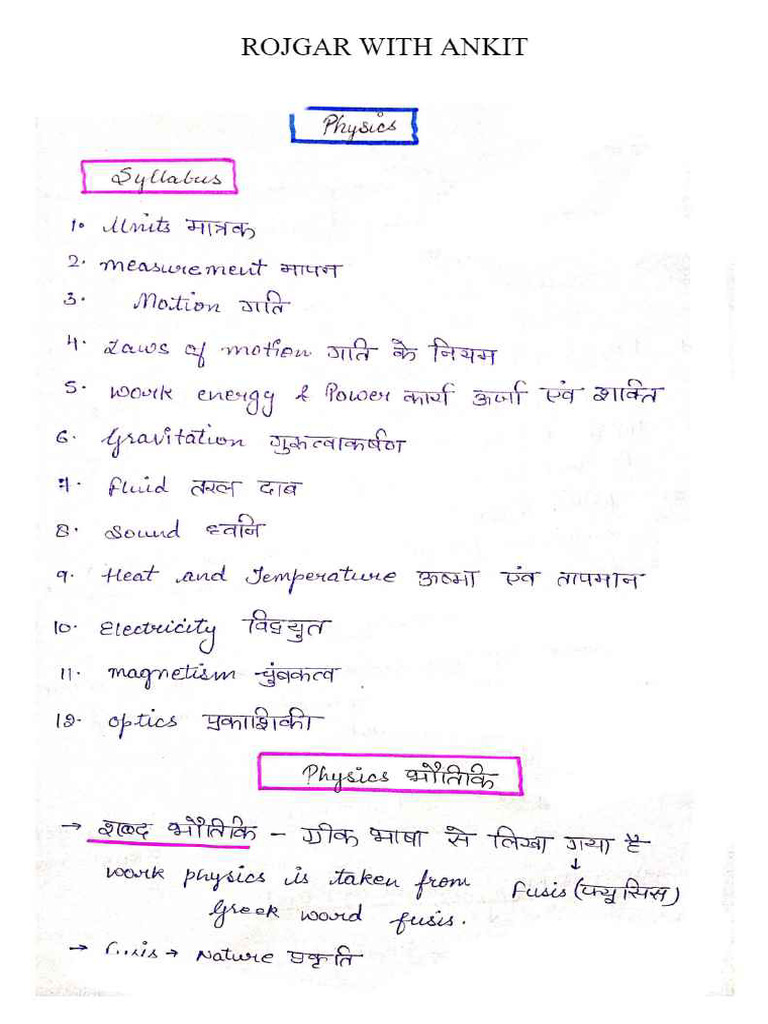 ROJGAR WITH ANKIT
Physics
Syllabus
1. Units मात्रक
2. Measurement मापन
3. Motion गति
4. Laws of motion गति के नियम
5. Work energy & Power कार्य ऊर्जा एंव शाक्ति
6. Gravitation गुरुत्वाकर्षण
7. Fluid तरल दाब
8. Sound ध्वनि
9. Heat and Temperature ऊष्मा एंव तापमान
10. Electricity विद्युत
11. Magnetism चुंबकत्व
12. Optics प्रकाशिकी
Physics भौतिकि
→ शब्द भौतिकि – ग्रीक भाषा से लिखा गया है
↓
work physics is taken from Fusis (फ्यूसिस)
Greek word fusis.
→ → Nature प्रकृति